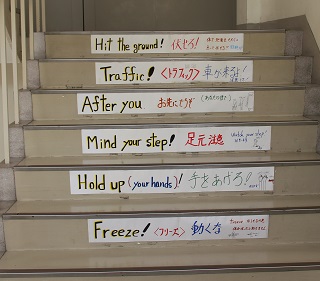 Hit the ground! 伏せろ!
Traffic! <トラフィック> 車が来るよ!
After you お先にどうぞ
Mind your step! 足元注意 Watch your step!
Hold up (your hands)! 手をあげろ!
Freeze! <フリーズ> 動くな